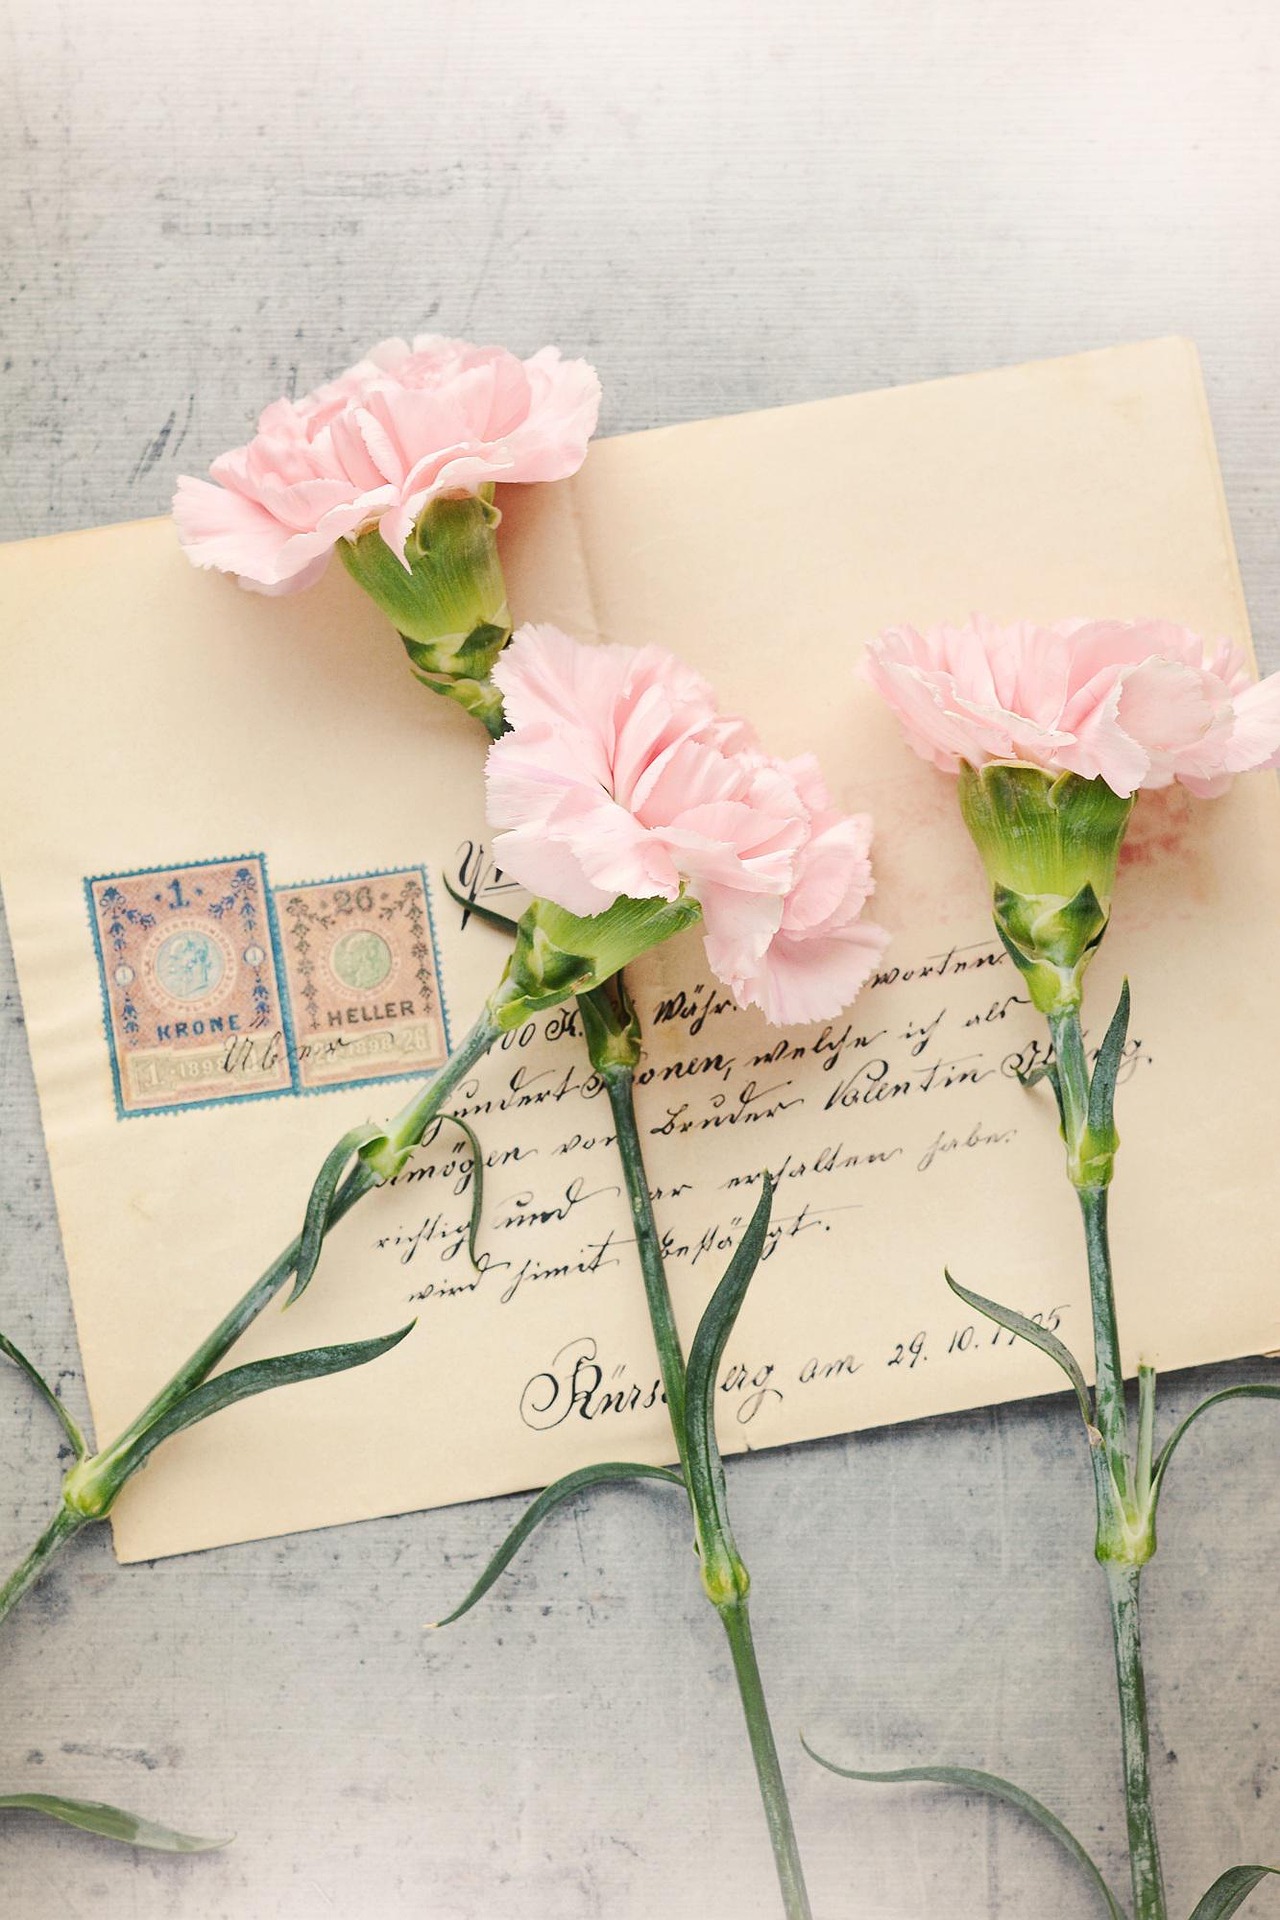 1
KRONE
1 · 1898
26
HELLER
1898 26
Über
00 K. Währ. worten
undert onen, welche ich als
mögen von Bruder Valentin
richtig und ar erhalten habe.
wird himit bestätigt.
erg am 29. 10. 1905